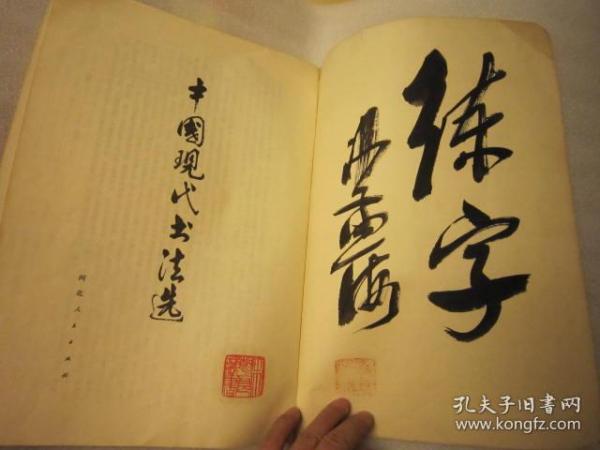 中國現代书法選
河北人民出版社
练字
孔夫子旧書网
www.kongfz.com